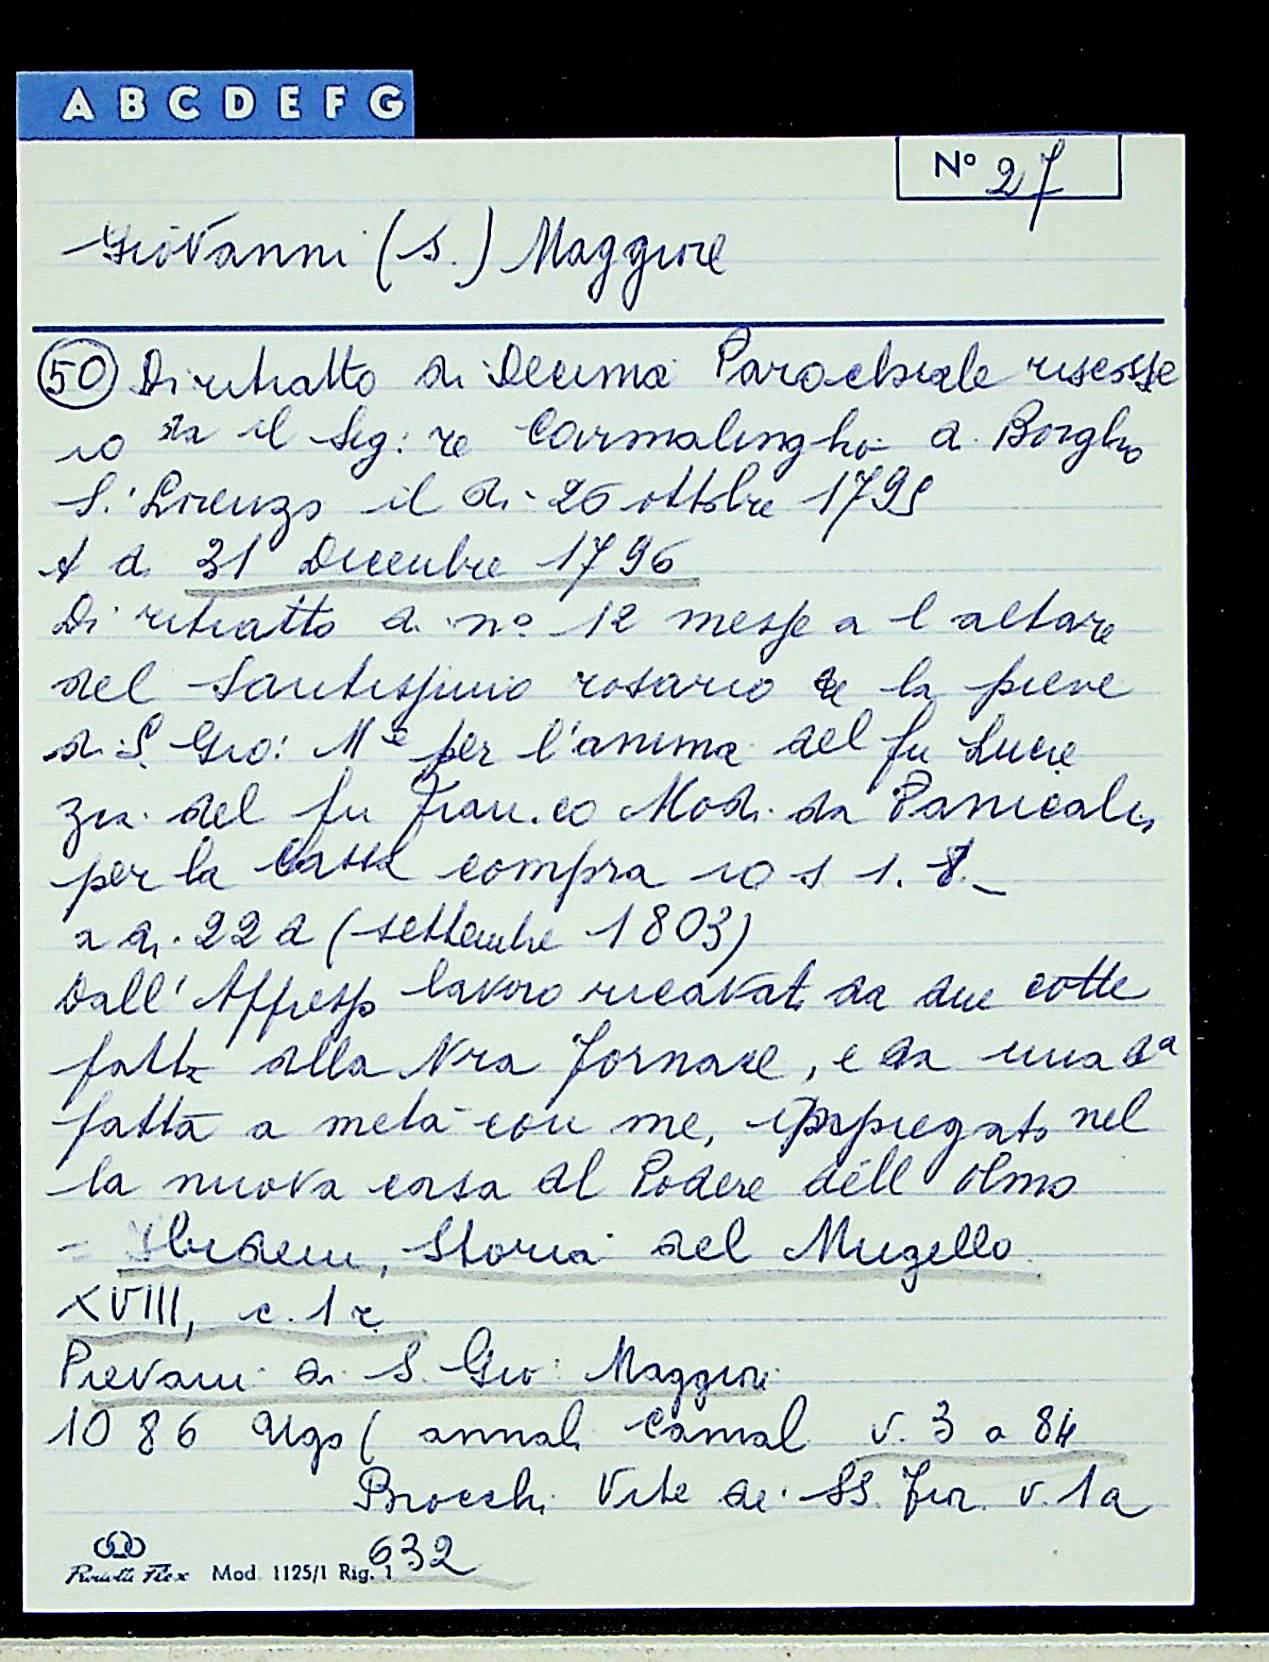 A B C D E F G
Nº 27
Giovanni (S.) Maggiore
50 Di ritratto di Decima Parochiale riscosse
io da il Sig: re Carmalinghi a Borgho
S. Lorenzo il di 26 ottobre 1795
A d. 31 Dicembre 1796
Di ritratto di nº 12 messe a l altare
del Santissimo rosario e la pieve
di S. Gio: M.e per l'anima del fu Lucre
zia del fu Fran.co Modi da Panicali,
per la compra 10 s 1. 8. _
a di 22 d (settembre 1803)
Dall' Appresso lavoro ricavato da due cotte
fatte alla Nra Fornace, e da una da
fatta a metà con me, impiegato nel
la nuova casa al Podere dell Olmo
= Ibidem, Storia del Mugello
XVIII, c. 1 r.
Pievani di S. Gio: Maggiore
1086 Ugo (annal. Camal. v. 3 a 84
Brocchi Vite dei SS. Fior. v. 1 a
632
Flex Mod. 1125/1 Rig. 1